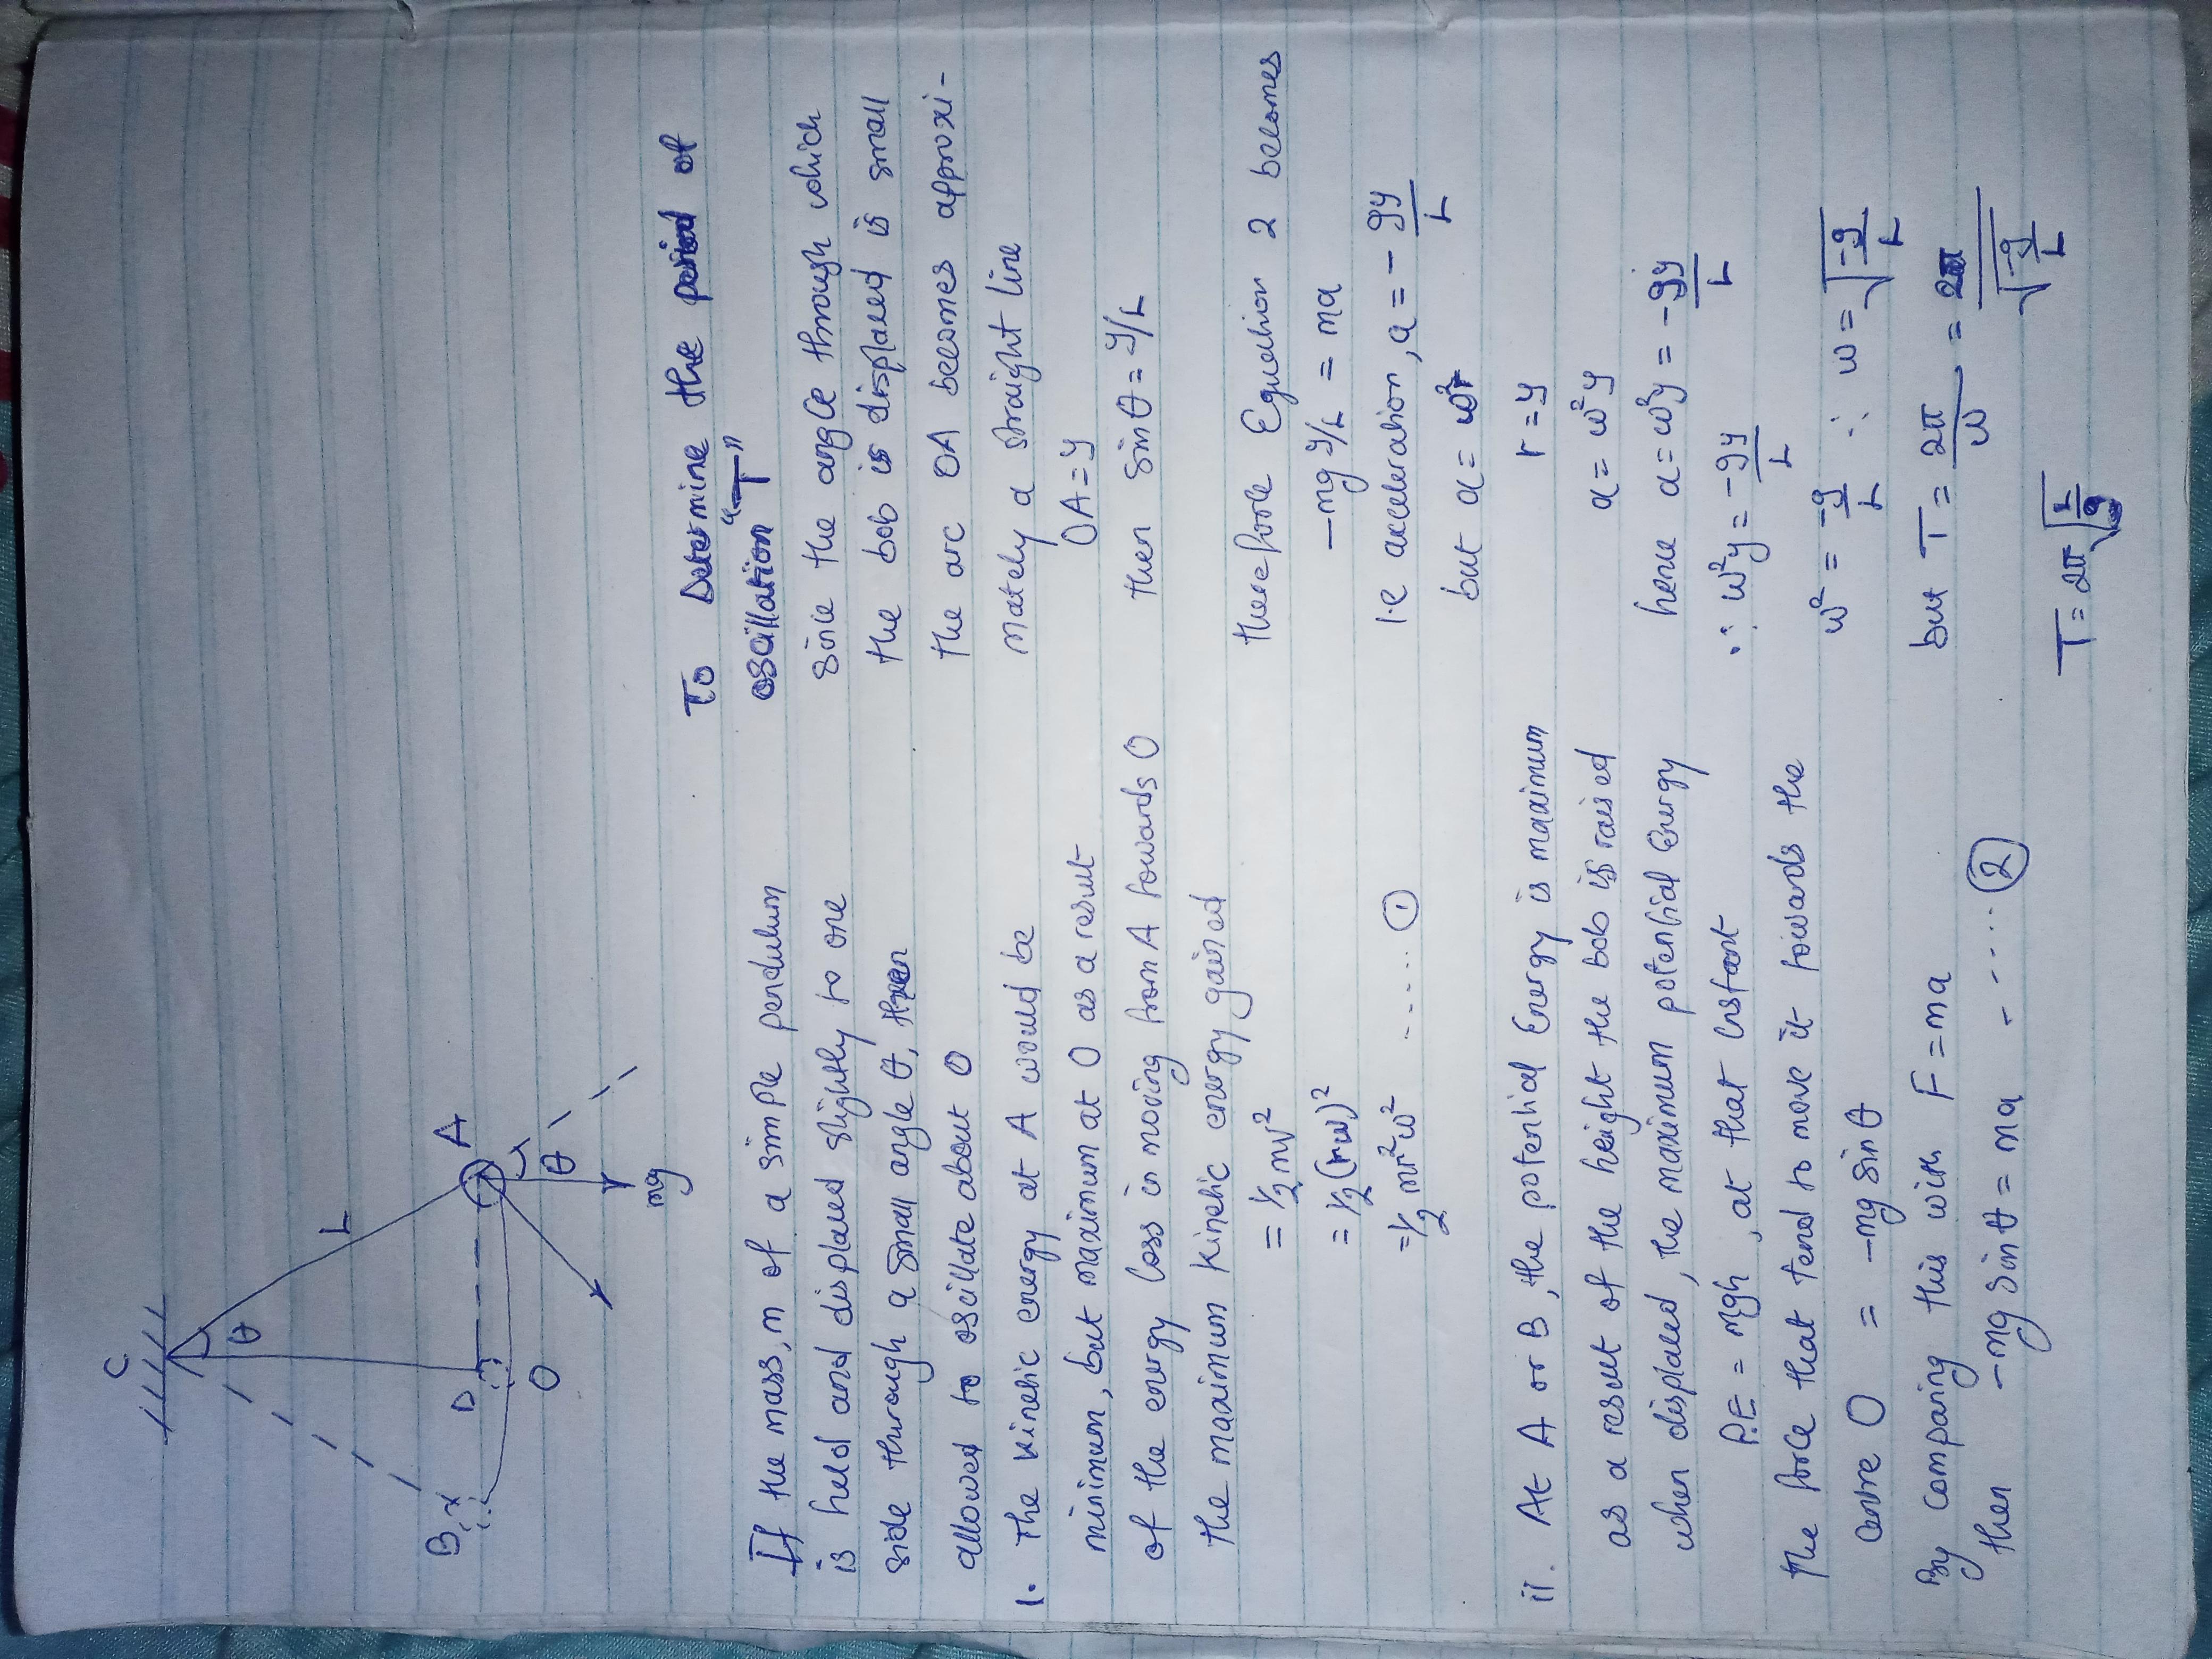 C
θ
L
B
D
A
O
θ
mg
If the mass, m of a simple pendulum
is held and displaced slightly to one
side through a small angle θ, then
allowed to oscillate about O
1. The kinetic energy at A would be
minimum, but maximum at O as a result
of the energy loss in moving from A towards O
the maximum kinetic energy gained
= 1/2 mv²
= 1/2 (rω)²
= 1/2 mr²ω² ..... ①
ii. At A or B, the potential Energy is maximum
as a result of the height the bob is raised
when displaced, the maximum potential Energy
P.E = mgh, at that instant
the force that tend to move it towards the
centre O = -mg sin θ
By comparing this with F = ma
then -mg sin θ = ma - .... ②
To Determine the period of
oscillation "T"
since the angle through which
the bob is displaced is small
the arc OA becomes approxi-
mately a straight line
OA = y
then sin θ = y/L
therefore Equation 2 becomes
-mg y/L = ma
i.e acceleration, a = - gy/L
but a = ω²r
r = y
a = ω²y
hence a = ω²y = - gy/L
∴ ω²y = - gy/L
ω² = -g/L ∴ ω = √-g/L
but T = 2π/ω = 2π/√-g/L
T = 2π √L/g